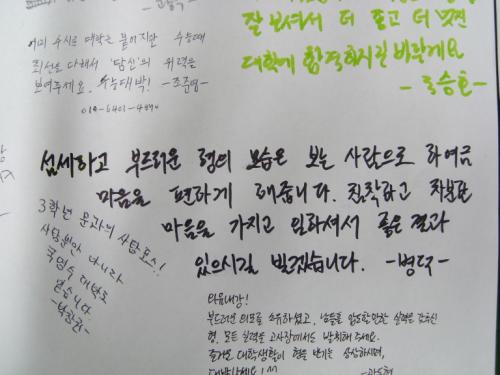 잘 보셔서 더 좋고 더 멋찐
대학에 합격하시길 바랄게요
이미 수시로 대학은 붙이지만 수능때
최선을 다해서 '담신'의 위력을
보여주세요. 수능대박! -조준영-
019-6401-4474
섬세하고 부드러운 형의 모습은 보는 사람으로 하여금
마음을 편하게 해줍니다. 침착하고 차분한
마음을 가지고 임하셔서 좋은 결과
있으시길 빌겠습니다. -병덕-
3학년 문과의 사탐포스!
사탐뿐만 아니라
국영수 대박도
믿습니다
외유내강!
부드러운 외모를 소유하셨고, 남들을 압도할만한 실력을 갖추신
형. 모든 실력을 고사장에서도 발휘해 주세요.
즐거운 대학생활이 형을 반기는 상상하시며,